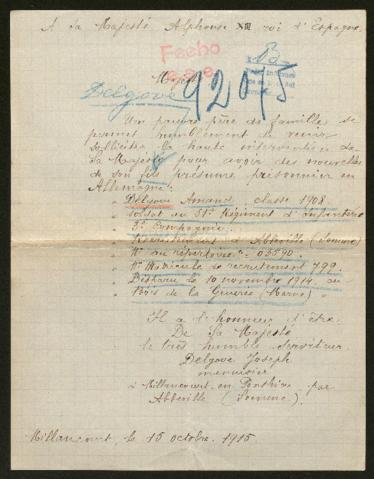 A Sa Majesté Alphonse XIII roi d'Espagne.
Fecho
B
Majesté
Delgove
92075
Un pauvre père de famille se
permet humblement de venir
solliciter la haute intervention de
Sa Majesté pour avoir des nouvelles
de son fils présumé prisonnier en
Allemagne:
Delgove Amand classe 1908
Soldat au 51e Régiment d'infanterie
Compagnie.
Recrutement d'Abbeville (Somme)
No au répertoire: 03590
No Matricule de recrutement 799.
Disparu le 10 novembre 1914 au
Bois de la Gruerie (Marne)
Il a l'honneur d'être
De Sa Majesté
le très humble serviteur.
Delgove Joseph
menuisier
à Millencourt-en-Ponthieu par
Abbeville (Somme).
Millencourt, le 15 octobre 1915